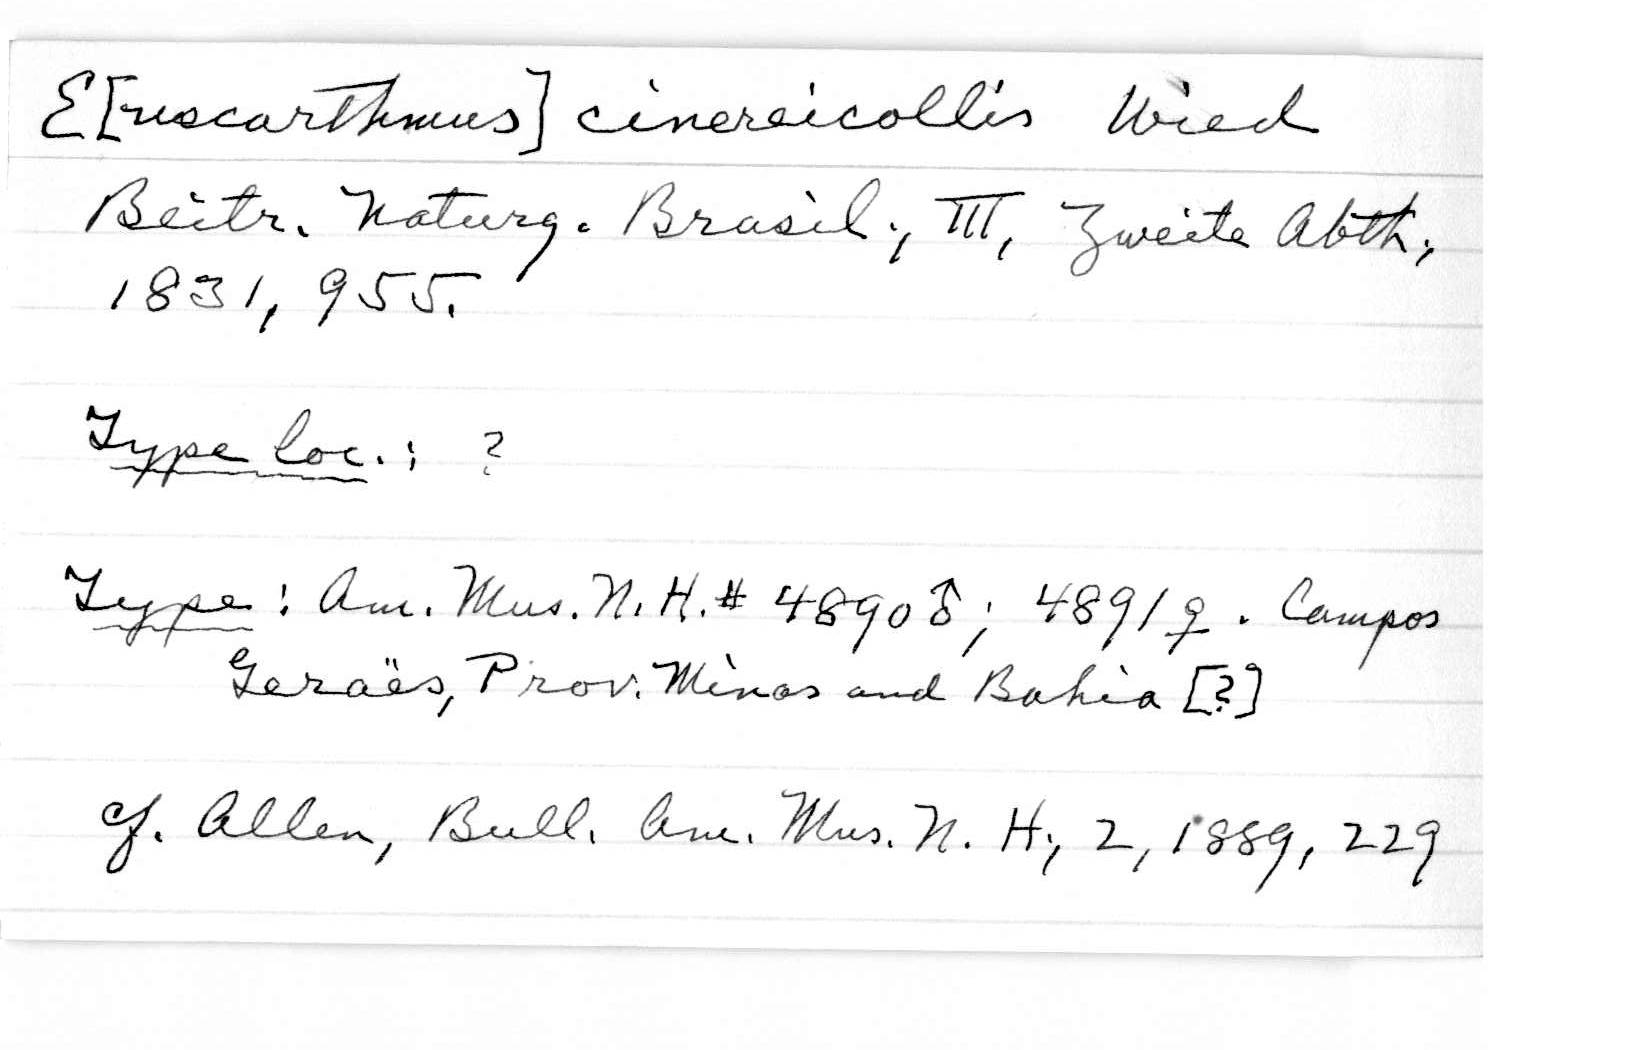 E[uscarthmus] cinereicollis Wied
Beitr. Naturg. Brasil., III, Zweite Abth.,
1831, 955.
Type loc.: ?
Type: Am. Mus. N. H. # 4890♂; 4891♀. Campos
Geraës, Prov. Minas and Bahia [?]
cf. Allen, Bull. Am. Mus. N. H., 2, 1889, 229